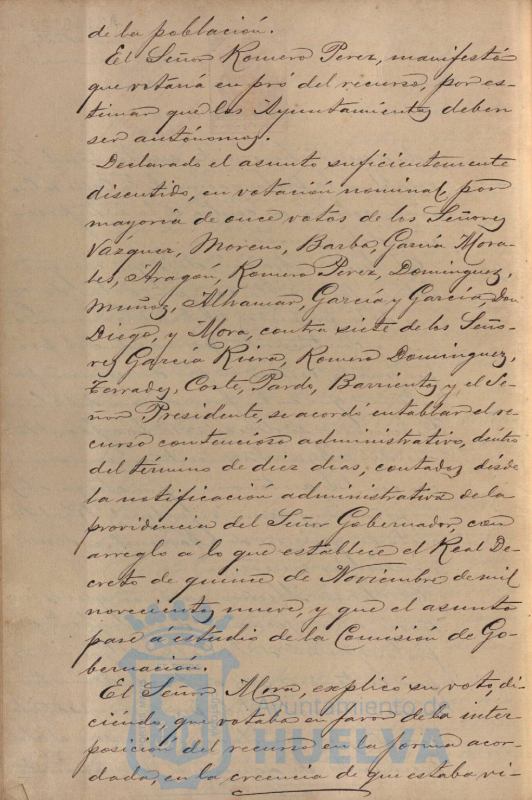 de la población.
El Señor Romero Perez, manifestó
que votaria en pró del recurso, por es-
timar que los Ayuntamientos deben
ser autónomos.
Declarado el asunto suficientemente
discutido, en votación nominal, por
mayoría de once votos de los Señores
Vazquez, Moreno, Barba, García Mora-
les, Aragon, Romero Perez, Dominguez,
Muñoz, Alhamar, García y García, Don
Diego, y Mora, contra siete de los Seño-
res García Riera, Romero Dominguez,
Terrades, Corte, Pardo, Barrientos y el Se-
ñor Presidente, se acordó entablar el re-
curso contencioso administrativo, dentro
del término de diez dias, contados desde
la notificación administrativa de la
providencia del Señor Gobernador, con
arreglo á lo que establece el Real De-
creto de quince de Noviembre de mil
novecientos nueve, y que el asunto
pase á estudio de la Comisión de Go-
bernación.
El Señor Mora, explicó su voto, di-
ciendo, que votaba en favor de la inter
posición del recurso en la forma acor-
dada, en la creencia de que estaba vi-
Ayuntamiento de
HUELVA